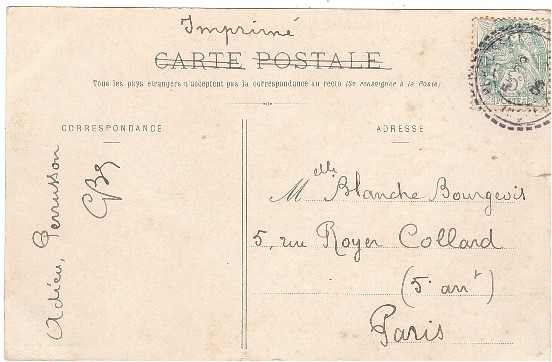 Imprimé
CARTE POSTALE
Tous les pays étrangers n'acceptent pas la correspondance au recto (Se renseigner à la Poste)
CORRESPONDANCE
ADRESSE
Adieu, Perrusson
Melle Blanche Bourgeois
5, rue Royer Collard
(5e arrt)
Paris